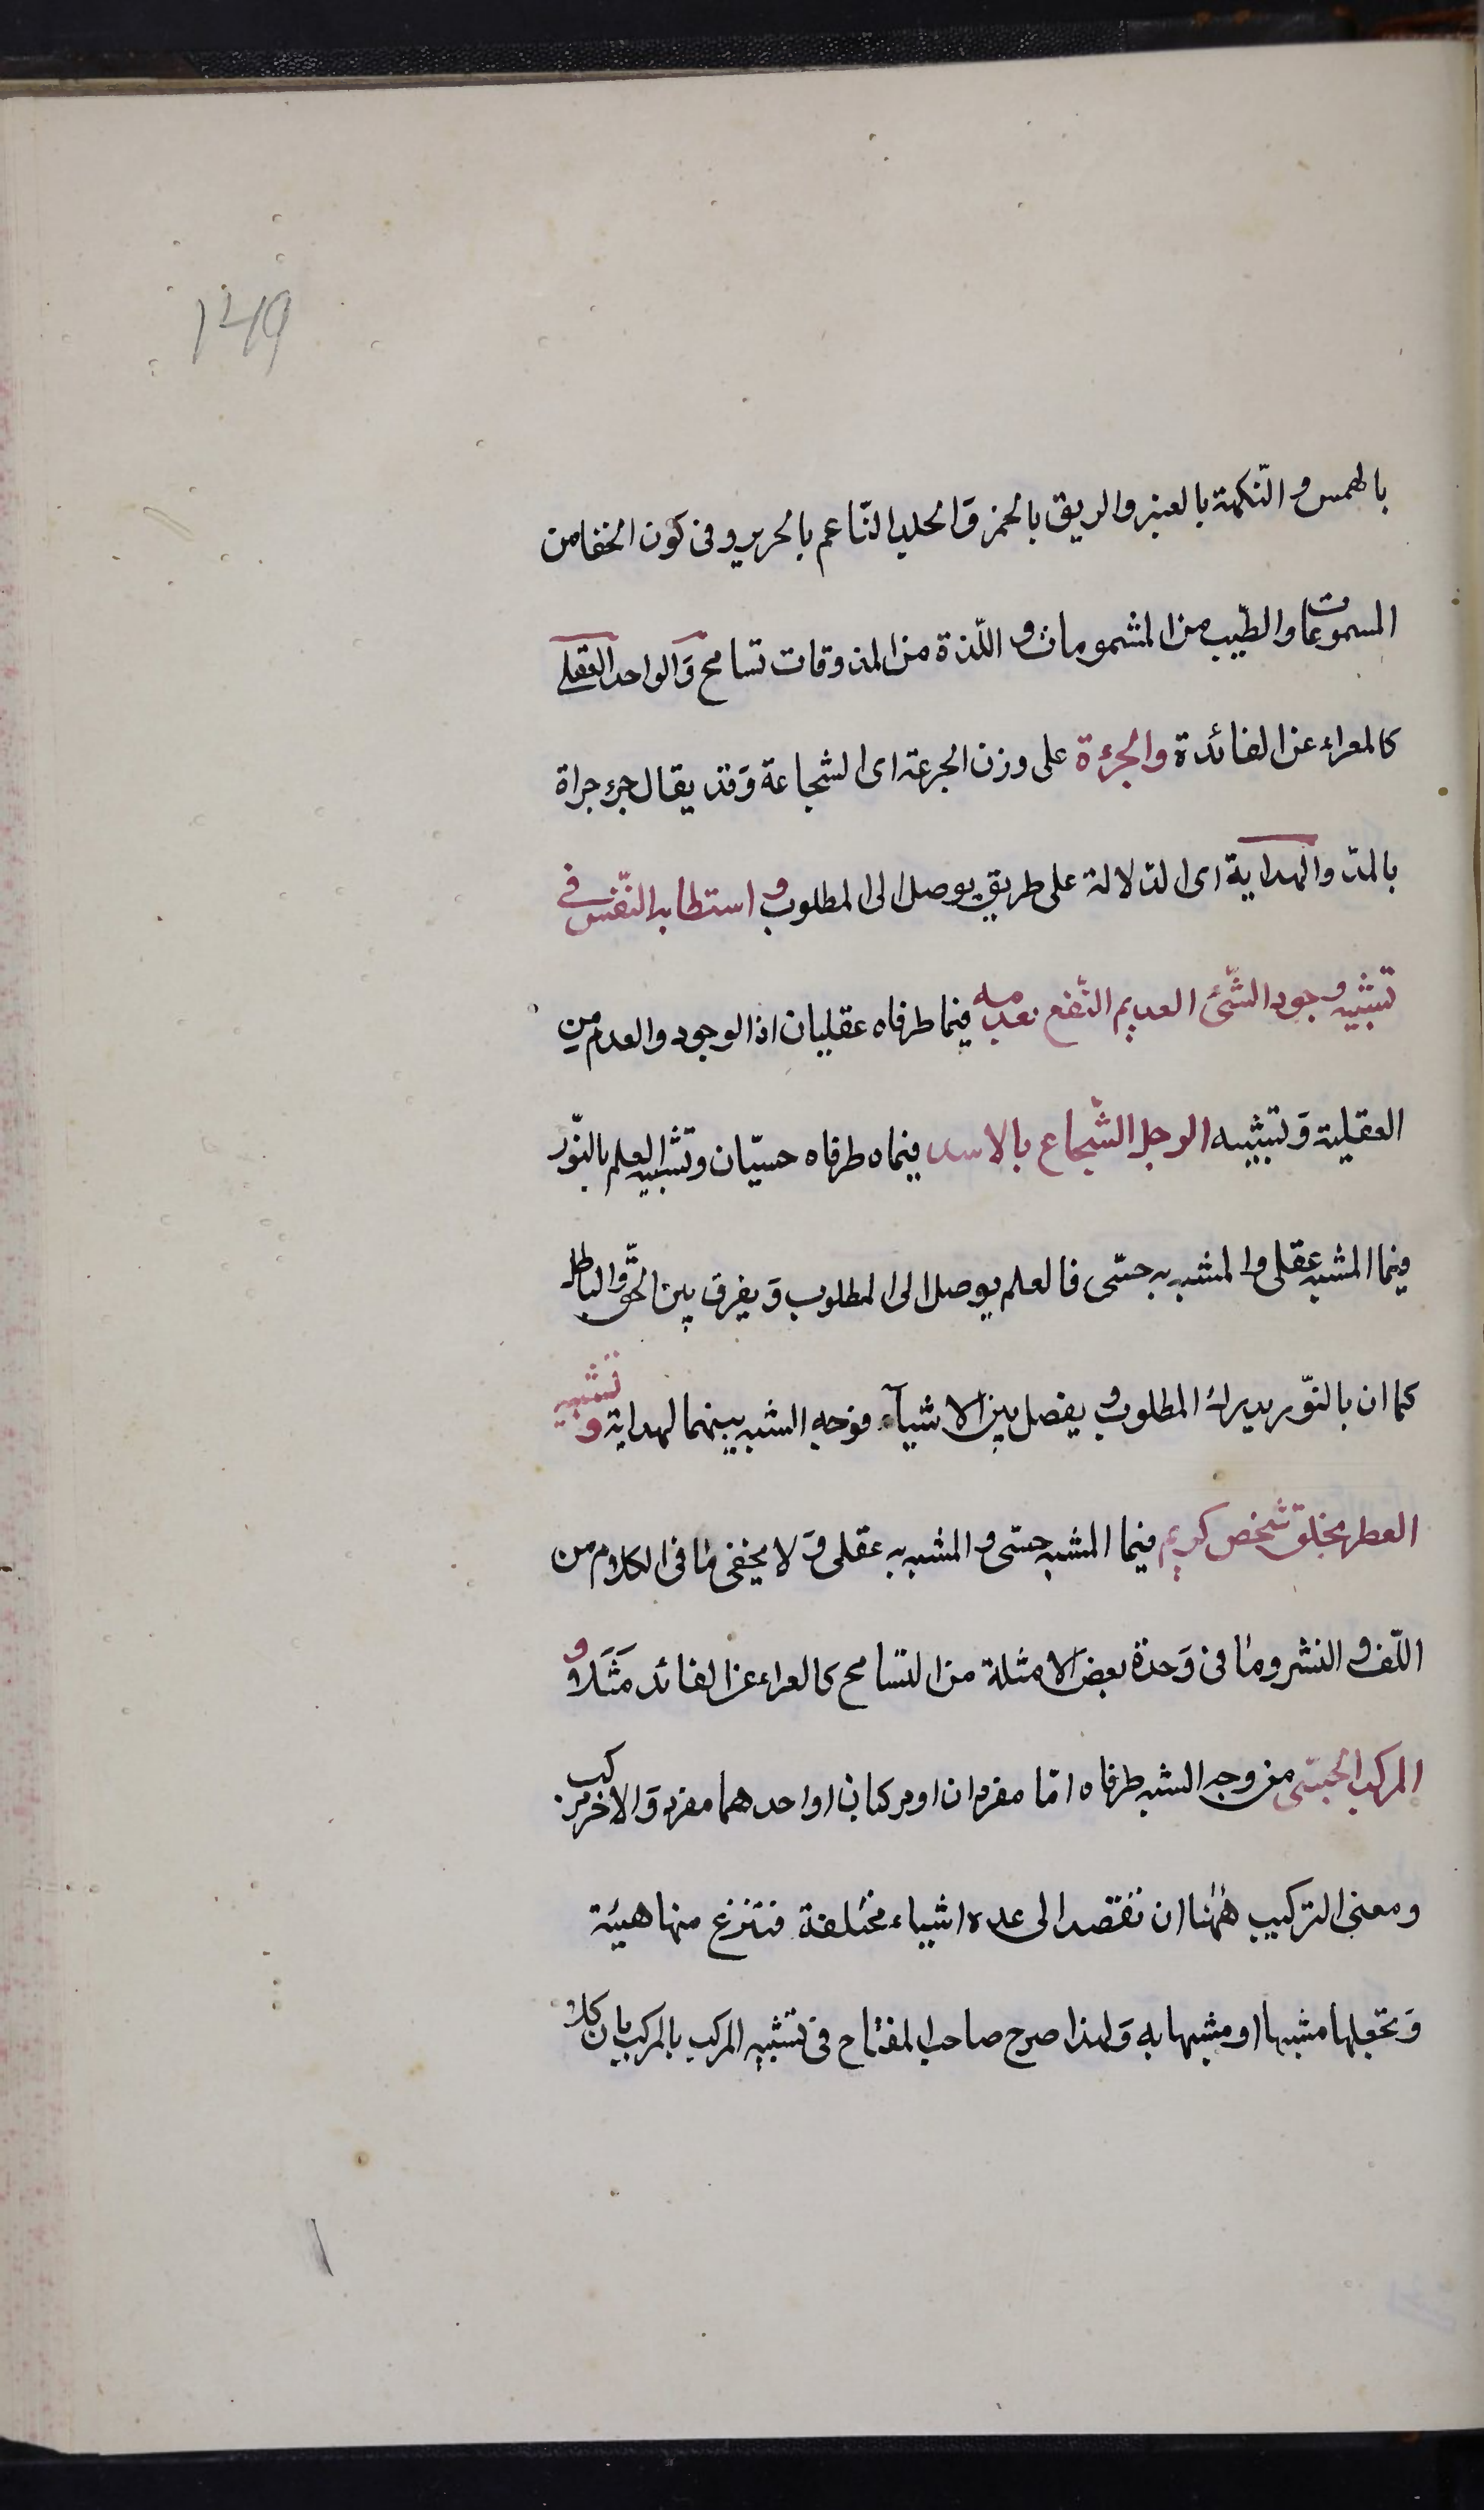 149
بالهمس و النّكهة بالعنبر والريق بالخمر وَالجلد النّاعم بالحرير و فى كون الخفا من
المسموعات والطّيب من المشمومات و اللّذة من المذوقات تسامح وَالواحد العقلى
كالعراء عن الفائدة والجرءة على وزن الجرعة اى الشجاعة وَقد يقال جرء جراة
بالمدّ والهداية اى الدّلالة على طريق يوصل الى المطلوب و استطابة النّفس فى
تشبيه وجود الشّئ العديم النّفع بعدمه فيما طرفاه عقليان اذ الوجود والعدم من
العقلية وَتشبيه الرجل الشّجاع بالاسد فيماه طرفاه حسيّان وتشبيه العلم بالنّور
فيما المشبه عقلى و المشبه به حسّى فالعلم يوصل الى المطلوب وَ يفرق بين الحقّ و الباطل
كما ان بالنّور يدرك المطلوب و يفصل بين الاشيآء فوجه الشبه بينهما لهداية و تشبيه
العطر بخلق شخص كريم فيما المشبه حسّى و المشبه به عقلى وَ لا يخفى ما فى الكلام من
اللّف و النشر وما فى وَحدة بعض الامثلة من التسامح كالعراء عن الفائد مَثَلاً و
المركب الحسّى من وجه الشبه طرفاه امّا مفردان او مركبان او احدهما مفرد وَ الاخر مركب
ومعنى التركيب هٰهنا ان تقصد الى عدة اشياء مختلفة فتنزع منها هيئة
وَ تجعلها مشبها او مشبها به وَلهذا صرح صاحب المفتاح فى تشبيه المركب بالمركب بان كلا